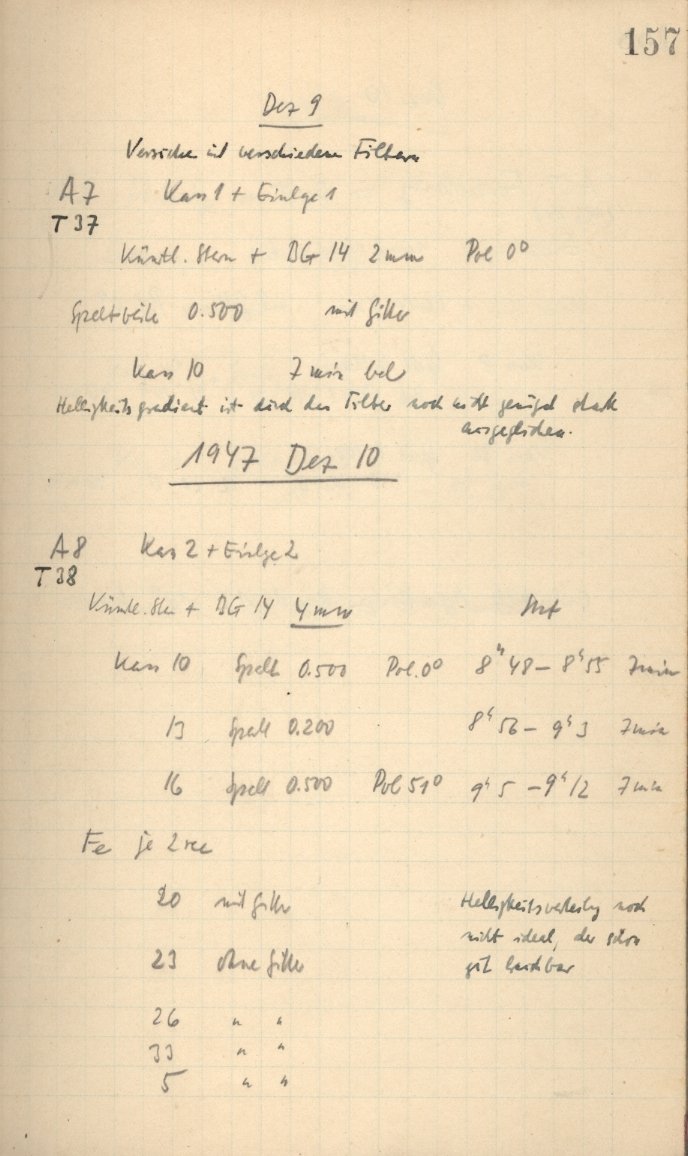 157
Dez 9
Versuche mit verschiedenen Filtern
A7 Kass 1 + Einlge 1
T 37
Künstl. Stern + BG 14 2mm Pol 0°
Spaltbreite 0.500 mit Gitter
Kass 10 7 min bel
Helligkeitsgradient ist durch das Filter noch nicht genügd stark
ausgeglichen.
1947 Dez 10
A8 Kass 2 + Einlge 2
T 38
Künstl. Stern + BG 14 4mm
Kass 10 Spalt 0.500 Pol. 0° 8h 48 – 8h 55 7min
13 Spalt 0.200 8h 56 – 9h 3 7min
16 Spalt 0.500 Pol 51° 9h 5 – 9h 12 7min
Fe je 2 sec
20 mit Gitter Helligkeitsverteilg noch
nicht ideal, aber schon
23 ohne Gitter gut brauchbar
26 " "
33 " "
5 " "